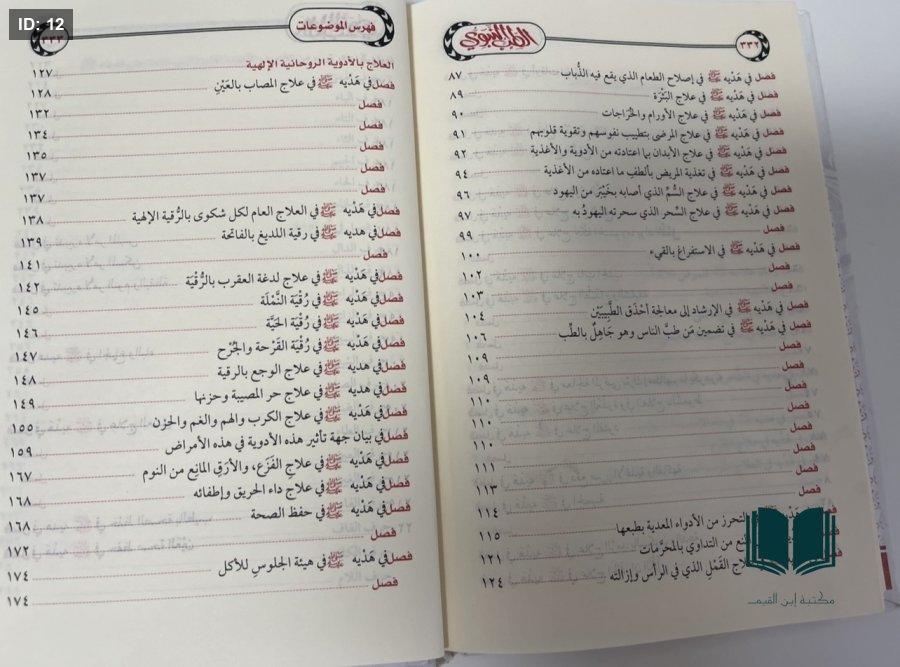 ID: 12
٣٣٢
الطب النبوي
فصل في هَدْيه ﷺ في إصلاح الطعام الذي يقع فيه الذُّباب ٨٧
فصل في هَدْيه ﷺ في علاج البَثْرَة ٨٩
فصل في هَدْيه ﷺ في علاج الأورام والخُرَاجات ٩٠
فصل في هَدْيه ﷺ في علاج المرضى بتطييب نفوسهم وتقوية قلوبهم ٩١
فصل في هَدْيه ﷺ في علاج الأبدان بما اعتادته من الأدوية والأغذية ٩٢
فصل في هَدْيه ﷺ في تغذية المريض بألطف ما اعتاده من الأغذية ٩٤
فصل في هَدْيه ﷺ في علاج السُّمِّ الذي أصابه بخَيْبَر من اليهود ٩٦
فصل في هَدْيه ﷺ في علاج السِّحر الذي سحرته اليهودُ به ٩٧
فصل ٩٩
فصل في هَدْيه ﷺ في الاستفراغ بالقيء ١٠٠
فصل ١٠٢
فصل ١٠٣
فصل في هَدْيه ﷺ في الإرشاد إلى معالجة أحْذَق الطَّبِيبَيْن ١٠٤
فصل في هَدْيه ﷺ في تضمين مَن طبَّ الناس وهو جَاهِلٌ بالطِّب ١٠٦
فصل ١٠٩
فصل ١٠٩
فصل ١١٠
فصل ١١٠
فصل ١١٠
فصل ١١١
فصل ١١٣
فصل ١١٤
التحرز من الأدواء المعدية بطبعها ١١٥
من التداوي بالمحرَّمات ١٢١
القَمْلِ الذي في الرأس وإزالته ١٢٤
مكتبة إبن القيم
فهرس الموضوعات
٣٣٣
العلاج بالأدوية الروحانية الإلهية ١٢٧
فصل في هَدْيه ﷺ في علاج المصاب بالعَيْنِ ١٢٨
فصل ١٣٢
فصل ١٣٤
فصل ١٣٥
فصل ١٣٧
فصل ١٣٧
فصل في هَدْيه ﷺ في العلاج العام لكل شكوى بالرُّقية الإلهية ١٣٨
فصل في هديه ﷺ في رقية اللديغ بالفاتحة ١٣٩
فصل ١٤١
فصل في هَدْيه ﷺ في علاج لدغة العقرب بالرُّقْيَة ١٤٢
فصل في هَدْيه ﷺ في رُقْيَة النَّمْلَة ١٤٥
فصل في هَدْيه ﷺ في رُقْيَة الحَيَّة ١٤٦
فصل في هَدْيه ﷺ في رُقْيَة القَرْحة والجُرْح ١٤٧
فصل في هديه ﷺ في علاج الوجع بالرقية ١٤٨
فصل في هَدْيه ﷺ في علاج حر المصيبة وحزنها ١٤٩
فصل في هَدْيه ﷺ في علاج الكرب والهم والغم والحزن ١٥٥
فصل في بيان جهة تأثير هذه الأدوية في هذه الأمراض ١٥٩
فصل في هَدْيه ﷺ في علاجِ الفَزَع، والأرَقِ المانِع من النوم ١٦٧
فصل في هَدْيه ﷺ في علاج داء الحريق وإطفائه ١٦٨
فصل في هَدْيه ﷺ في حفظ الصحة ١٦٨
فصل ١٧٢
فصل في هَدْيه ﷺ في هيئة الجلوسِ للأكل ١٧٤
فصل ١٧٤